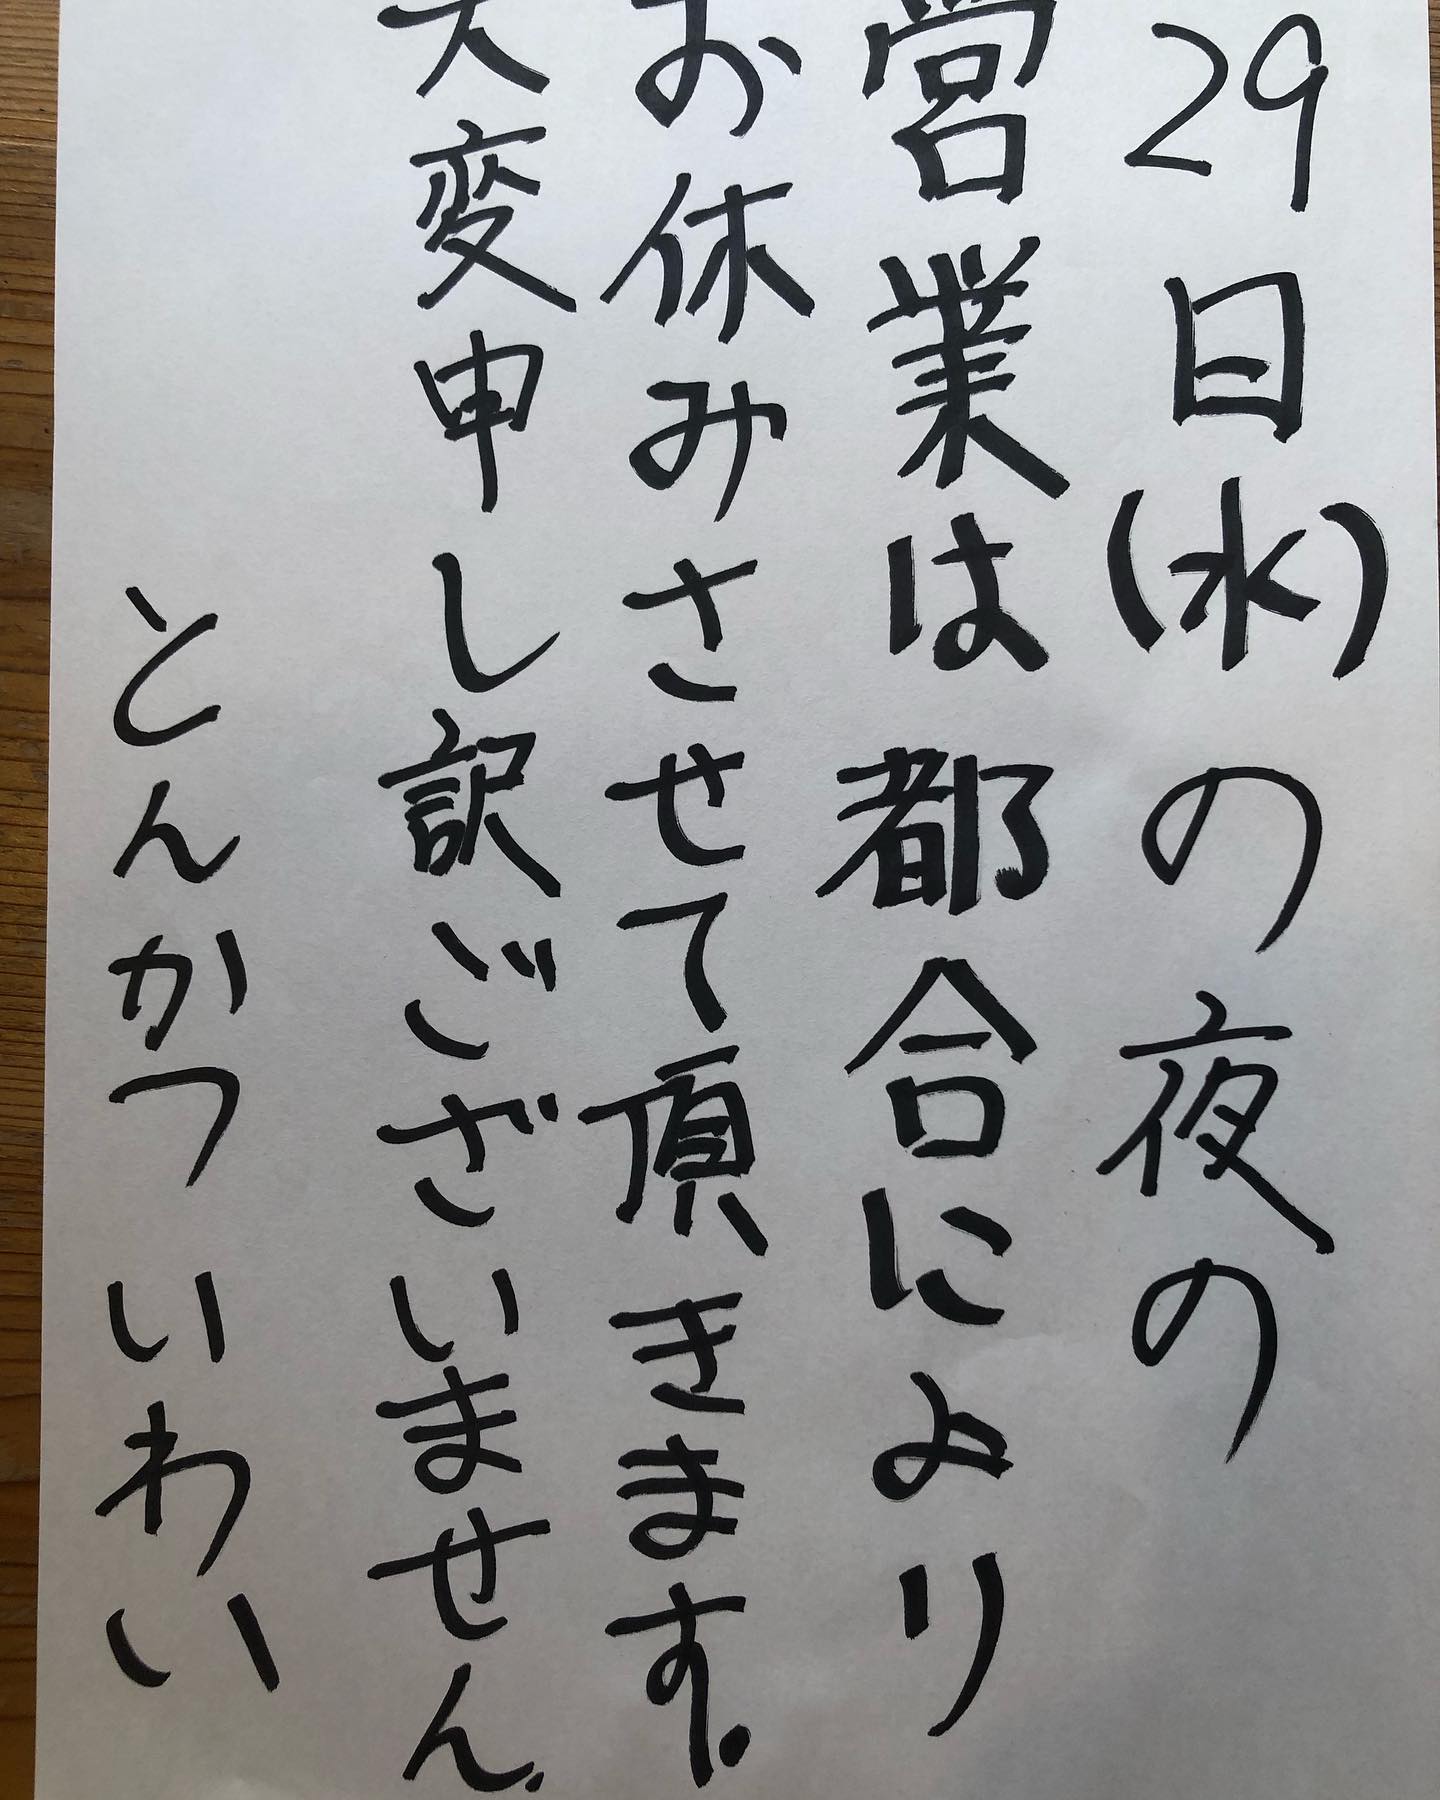 29日(水)の夜の
営業は都合により
お休みさせて頂きます。
大変申し訳ございません。
とんかつ いわい